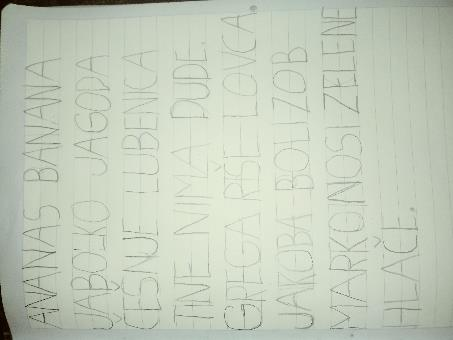 ANANAS BANANA
JABOLKO JAGODA
ČESNJE LUBENICA
TINE NIMA DUDE.
GREGA RIŠE LOVCA.
JAKOBA BOLI ZOB
MARKO NOSI ZELENE
HLAČE.